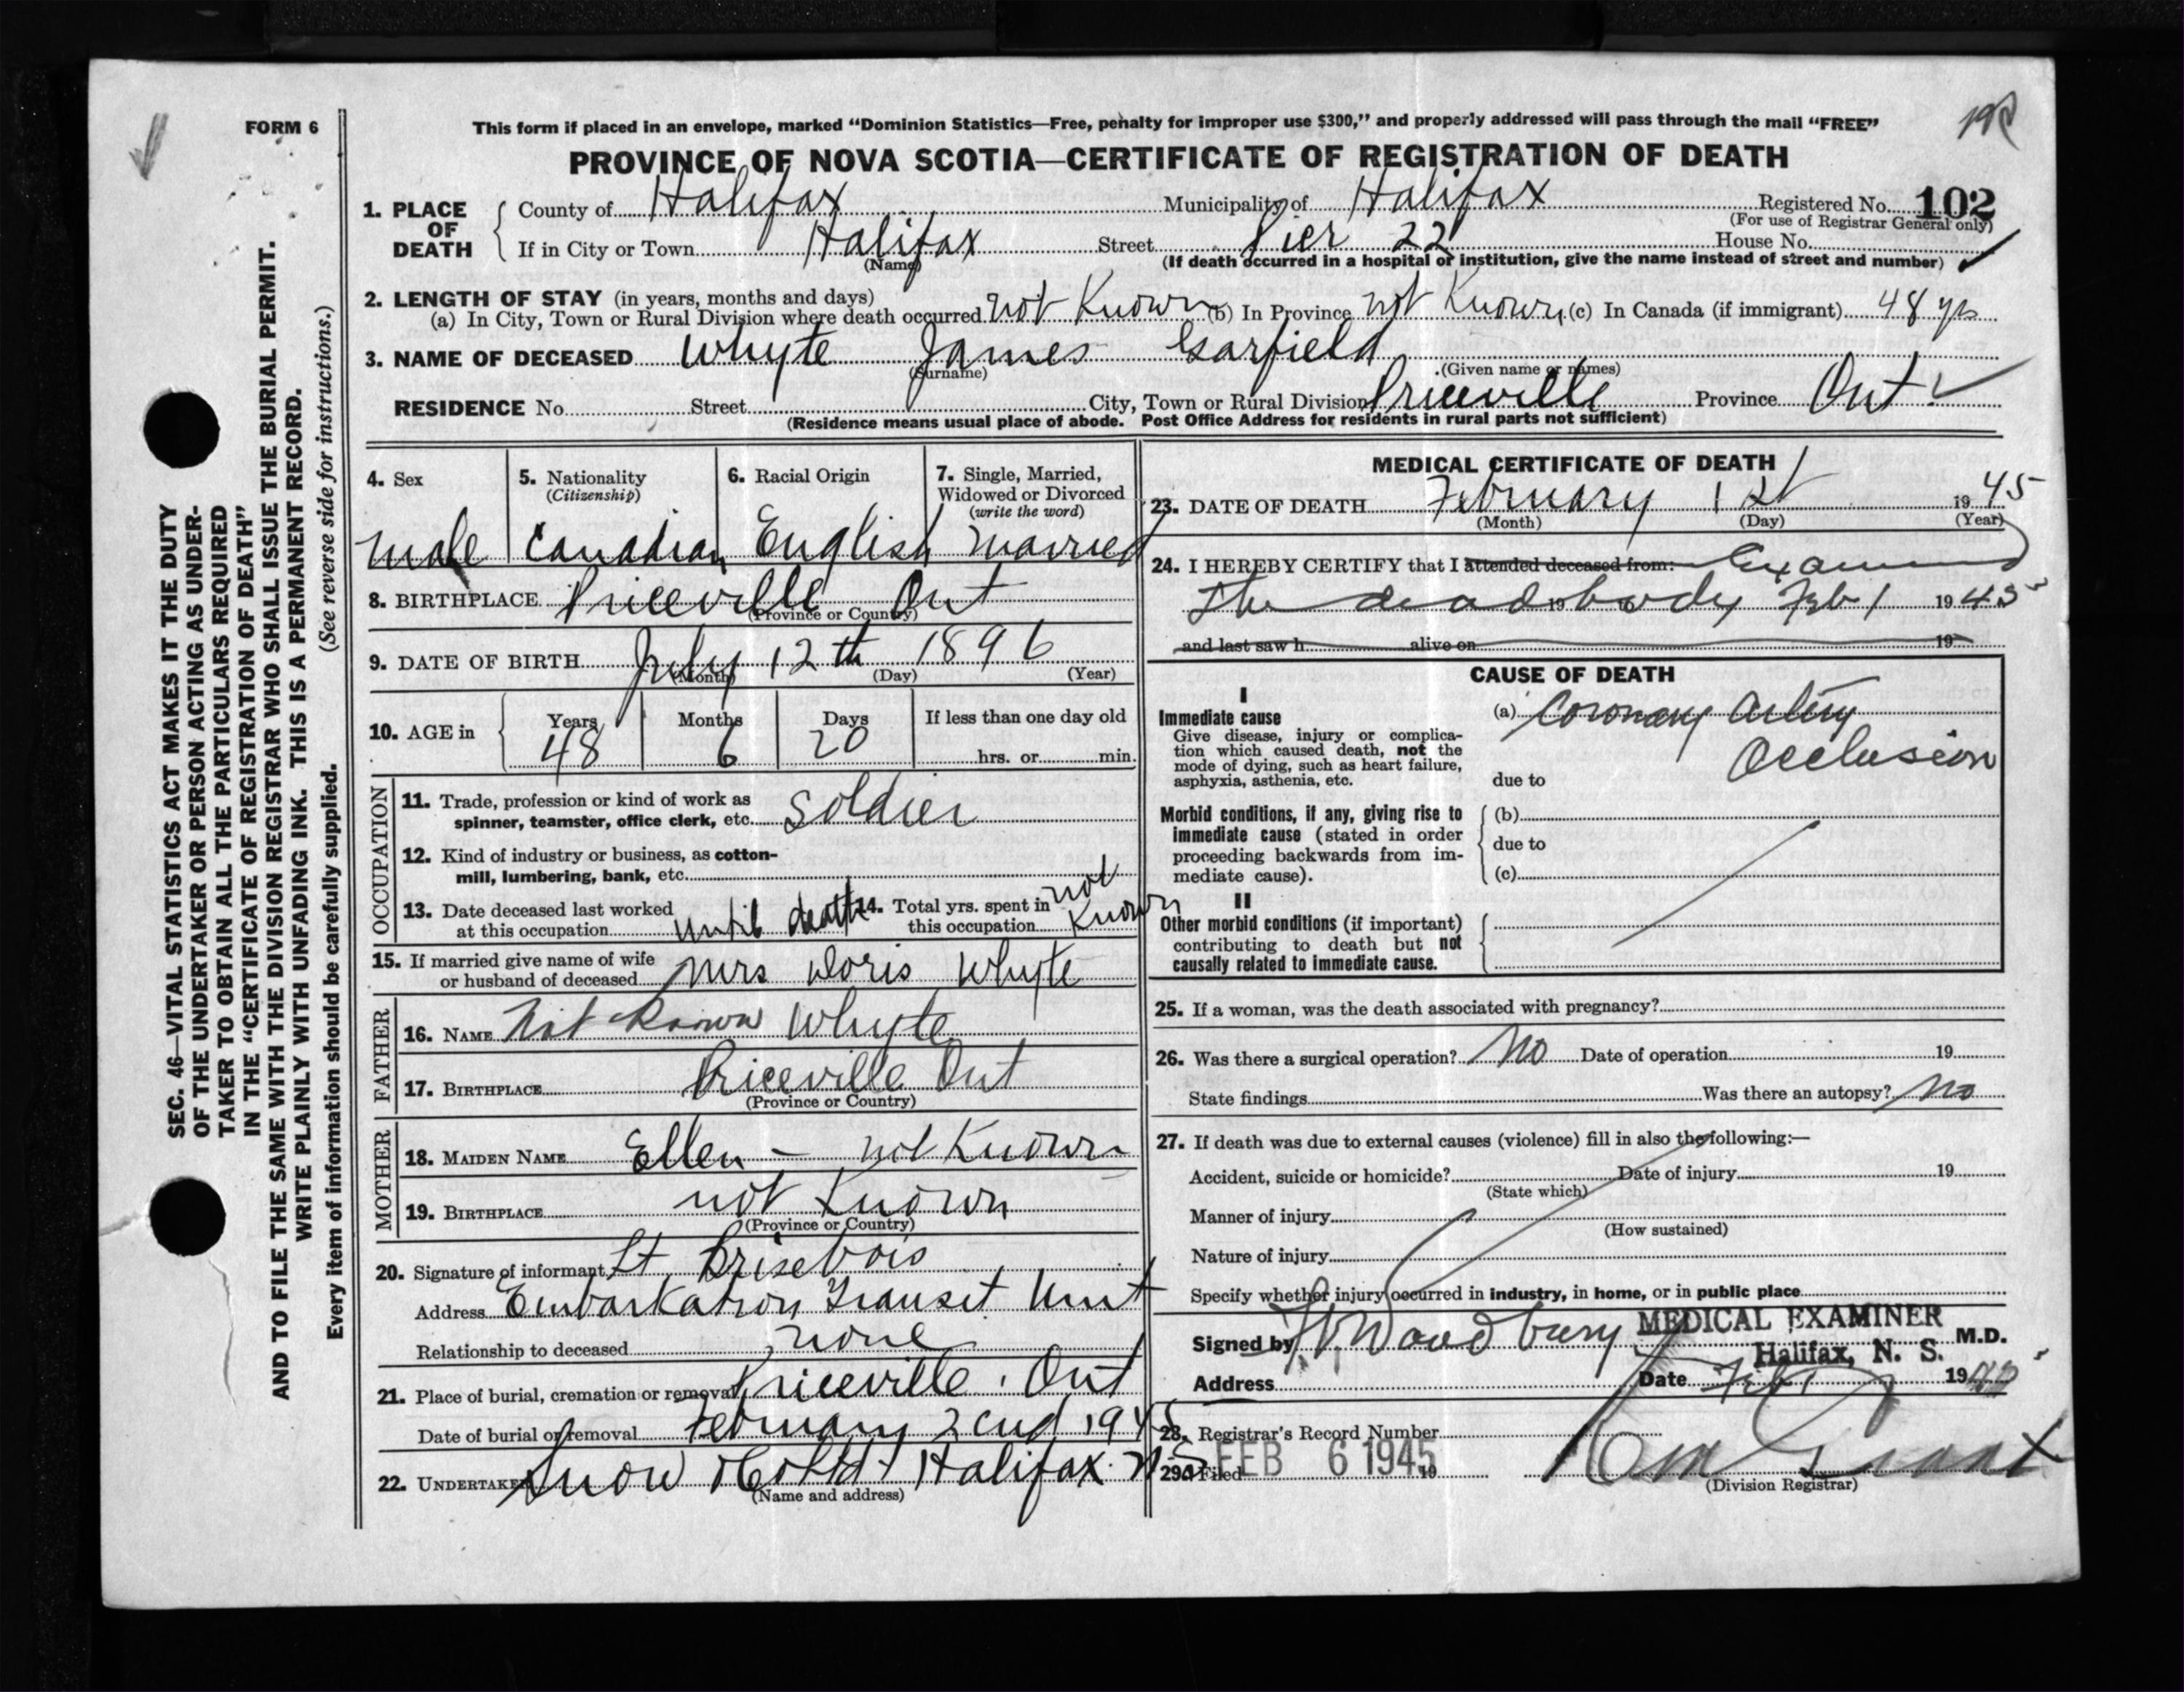 FORM 6
This form if placed in an envelope, marked “Dominion Statistics—Free, penalty for improper use $300,” and properly addressed will pass through the mail “FREE”
PROVINCE OF NOVA SCOTIA—CERTIFICATE OF REGISTRATION OF DEATH
1. PLACE OF DEATH
County of Halifax Municipality of Halifax Registered No. 102
(For use of Registrar General only)
If in City or Town Halifax Street Pier 22 House No.
(Name)
(If death occurred in a hospital or institution, give the name instead of street and number)
2. LENGTH OF STAY (in years, months and days)
(a) In City, Town or Rural Division where death occurred not Known (b) In Province not Known (c) In Canada (if immigrant) 48 yrs
3. NAME OF DECEASED Whyte James Garfield
(Surname) (Given name or names)
RESIDENCE No. Street City, Town or Rural Division Priceville Province Ont
(Residence means usual place of abode. Post Office Address for residents in rural parts not sufficient)
4. Sex
male
5. Nationality
(Citizenship)
Canadian
6. Racial Origin
English
7. Single, Married, Widowed or Divorced
(write the word)
Married
8. BIRTHPLACE Priceville Ont
(Province or Country)
9. DATE OF BIRTH July 12th 1896
(Month) (Day) (Year)
10. AGE in
Years Months Days If less than one day old
48 6 20 hrs. or min.
OCCUPATION
11. Trade, profession or kind of work as
spinner, teamster, office clerk, etc. Soldier
12. Kind of industry or business, as cotton-
mill, lumbering, bank, etc.
13. Date deceased last worked
at this occupation until death
14. Total yrs. spent in
this occupation not Known
15. If married give name of wife
or husband of deceased Mrs Doris Whyte
FATHER
16. NAME Not Known Whyte
17. BIRTHPLACE Priceville Ont
(Province or Country)
MOTHER
18. MAIDEN NAME Ellen – not Known
19. BIRTHPLACE not Known
(Province or Country)
20. Signature of informant Lt Brisebois
Address Embarkation Transit Unit
Relationship to deceased none
21. Place of burial, cremation or removal Priceville. Ont
Date of burial or removal February 2cnd 1945
22. UNDERTAKER Snow & Co Ltd Halifax N S
(Name and address)
MEDICAL CERTIFICATE OF DEATH
23. DATE OF DEATH February 1st 1945
(Month) (Day) (Year)
24. I HEREBY CERTIFY that I attended deceased from: Examined
the dead body Feb 1 1945
19
and last saw h alive on 19
CAUSE OF DEATH
I
Immediate cause
Give disease, injury or complica-
tion which caused death, not the
mode of dying, such as heart failure,
asphyxia, asthenia, etc.
(a) Coronary Artery
Occlusion
due to
Morbid conditions, if any, giving rise to
immediate cause (stated in order
proceeding backwards from im-
mediate cause).
(b)
due to
(c)
II
Other morbid conditions (if important)
contributing to death but not
causally related to immediate cause.
25. If a woman, was the death associated with pregnancy?
26. Was there a surgical operation? No Date of operation 19
State findings Was there an autopsy? No
27. If death was due to external causes (violence) fill in also the following:—
Accident, suicide or homicide? Date of injury 19
(State which)
Manner of injury
(How sustained)
Nature of injury
Specify whether injury occurred in industry, in home, or in public place
Signed by Woodbury MEDICAL EXAMINER M.D.
Halifax, N. S.
Address Date Feb 1 19
28. Registrar's Record Number
29. Filed FEB 6 1945 19
(Division Registrar)
SEC. 46—VITAL STATISTICS ACT MAKES IT THE DUTY
OF THE UNDERTAKER OR PERSON ACTING AS UNDER-
TAKER TO OBTAIN ALL THE PARTICULARS REQUIRED
IN THE “CERTIFICATE OF REGISTRATION OF DEATH”
AND TO FILE THE SAME WITH THE DIVISION REGISTRAR WHO SHALL ISSUE THE BURIAL PERMIT.
WRITE PLAINLY WITH UNFADING INK. THIS IS A PERMANENT RECORD.
Every item of information should be carefully supplied. (See reverse side for instructions.)